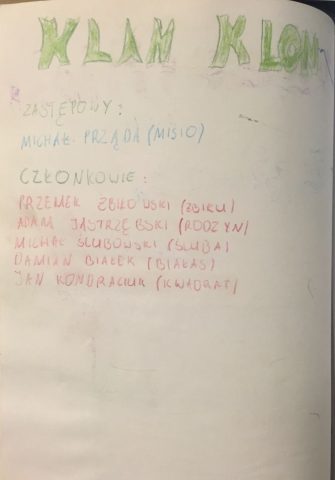 KLAN KLON
ZASTĘPOWY:
MICHAŁ PRZĄDA (MISIO)
CZŁONKOWIE:
PRZEMEK ZBIŁOWSKI (ZBIKU)
ADAM JASTRZĘBSKI (RODZYN)
MICHAŁ ŚLUBOWSKI (ŚLUBA)
DAMIAN BIAŁEK (BIAŁAS)
JAN KONDRACIUK (KWADRAT)